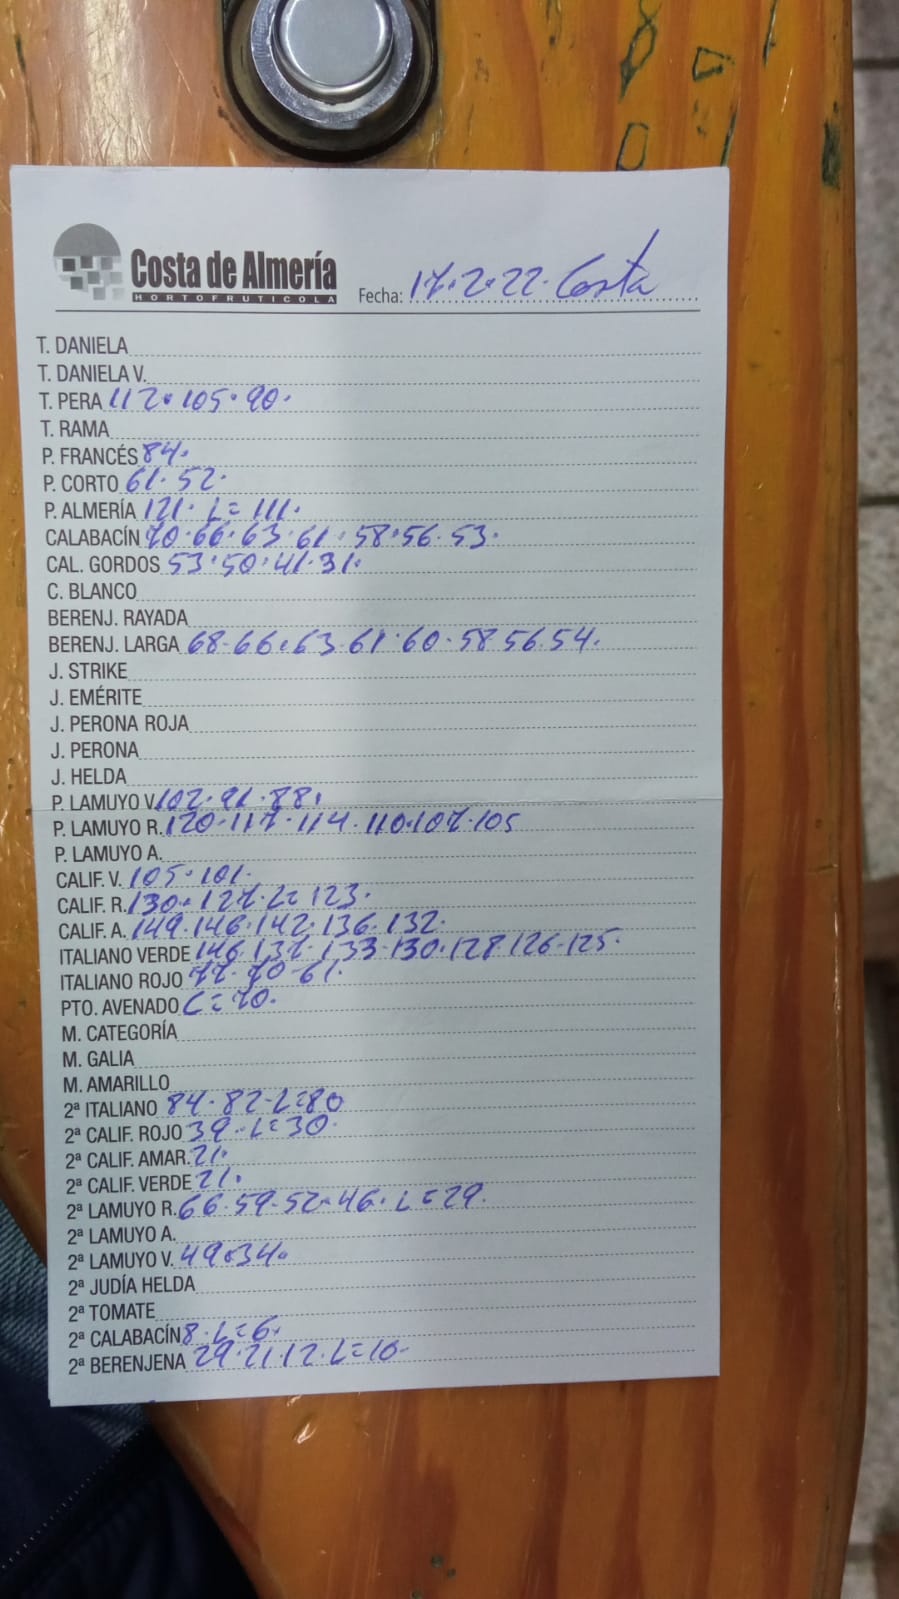 Costa de Almería
HORTOFRUTICOLA
Fecha: 17.2.22. Costa
T. DANIELA
T. DANIELA V.
T. PERA 112.105.90.
T. RAMA
P. FRANCÉS 84.
P. CORTO 61.52.
P. ALMERÍA 121. L=111.
CALABACÍN 70.66.63.61.58.56.53.
CAL. GORDOS 53.50.41.31.
C. BLANCO
BERENJ. RAYADA
BERENJ. LARGA 68.66.63.61.60.58 56.54.
J. STRIKE
J. EMÉRITE
J. PERONA ROJA
J. PERONA
J. HELDA
P. LAMUYO V. 102.91.88.
P. LAMUYO R. 120.117.114.110.107.105
P. LAMUYO A.
CALIF. V. 105.101.
CALIF. R. 130.127.L=123.
CALIF. A. 149.146.142.136.132.
ITALIANO VERDE 146.137.133.130.128 126.125.
ITALIANO ROJO 77.70.61.
PTO. AVENADO L=70.
M. CATEGORÍA
M. GALIA
M. AMARILLO
2ª ITALIANO 84.82.L=80
2ª CALIF. ROJO 39.L=30.
2ª CALIF. AMAR. 21.
2ª CALIF. VERDE 21.
2ª LAMUYO R. 66.59.52.46.L=29.
2ª LAMUYO A.
2ª LAMUYO V. 49.34.
2ª JUDÍA HELDA
2ª TOMATE
2ª CALABACÍN 8.L=6.
2ª BERENJENA 29.21.12.L=10.